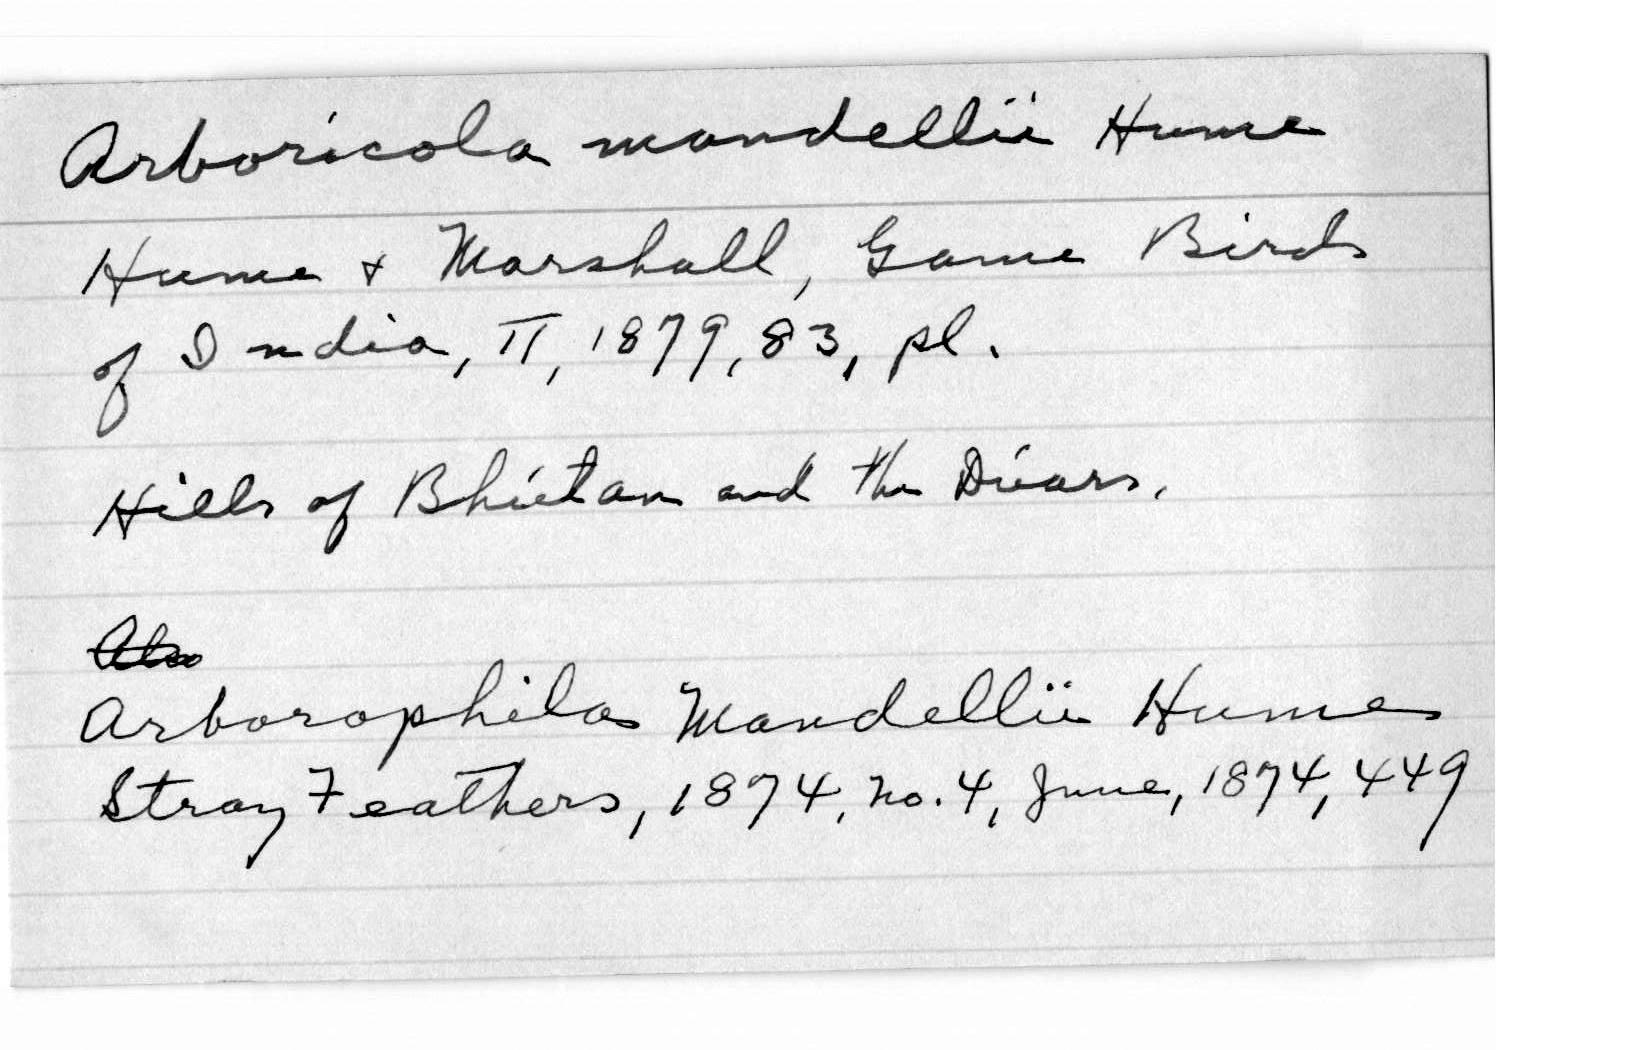 Arboricola mandellii Hume
Hume & Marshall, Game Birds
of India, II, 1879, 83, pl.
Hills of Bhútan and the Dúars.
Also
Arborophila Mandellii Hume
Stray Feathers, 1874, no. 4, June, 1874, 449